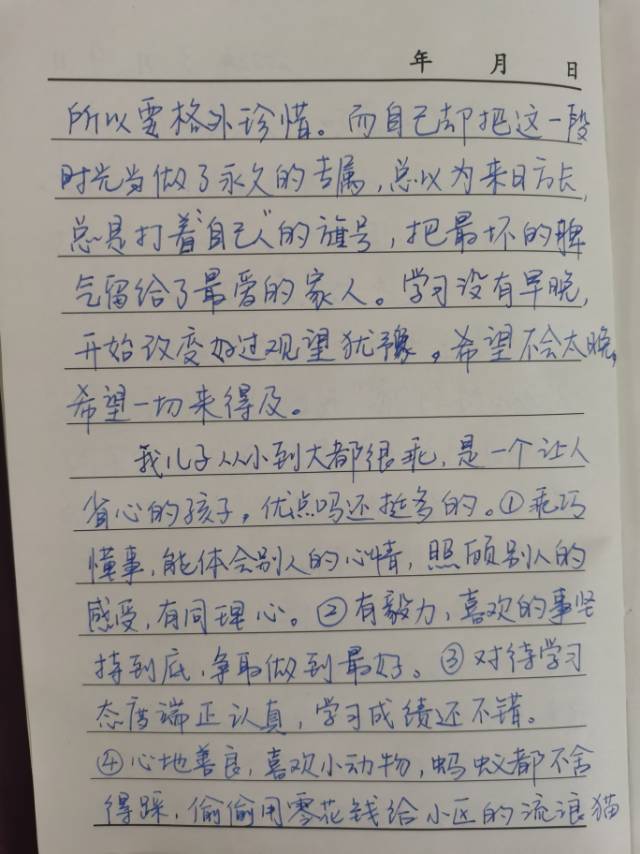 年 月 日
所以要格外珍惜。而自己却把这一段
时光当做了永久的专属,总以为来日方长,
总是打着“自己人”的旗号,把最坏的脾
气留给了最爱的家人。学习没有早晚,
开始改变好过观望犹豫。希望不会太晚,
希望一切来得及。
我儿子从小到大都很乖,是一个让人
省心的孩子,优点吗还挺多的。①乖巧
懂事,能体会别人的心情,照顾别人的
感受,有同理心。②有毅力,喜欢的事坚
持到底,争取做到最好。③对待学习
态度端正认真,学习成绩还不错。
④心地善良,喜欢小动物,蚂蚁都不舍
得踩,偷偷用零花钱给小区的流浪猫